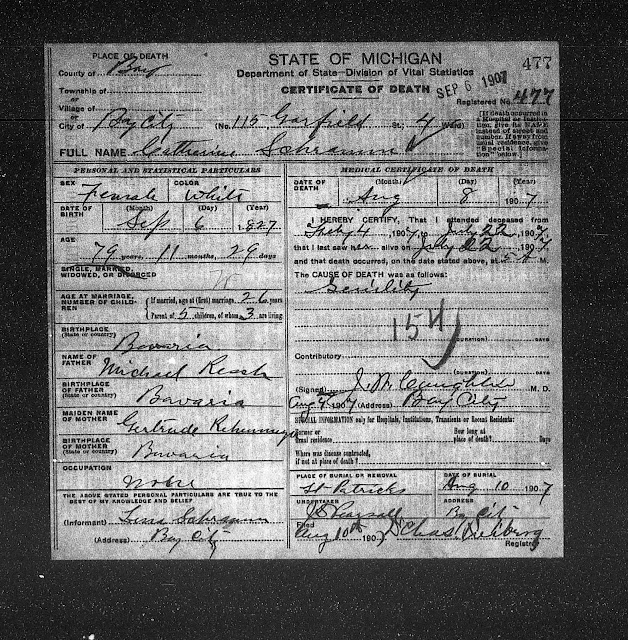 PLACE OF DEATH
County of Bay
Township of
or
Village of
or
City of Bay City
STATE OF MICHIGAN
Department of State—Division of Vital Statistics
CERTIFICATE OF DEATH
SEP 6 1907
477
Registered No. 477
(No. 115 Garfield St.; 4 Ward)
[If death occurred in a Hospital or Institution, give its NAME instead of street and number. If away from usual residence, give "Special Information" below.]
FULL NAME Catharine Schramm
PERSONAL AND STATISTICAL PARTICULARS
SEX Female
COLOR White
DATE OF BIRTH (Month) (Day) (Year)
Sep 6 1827
AGE
79 years, 11 months, 29 days
SINGLE, MARRIED,
WIDOWED, OR DIVORCED
AGE AT MARRIAGE,
NUMBER OF CHILDREN
(If married, age at (first) marriage, 26 years
(Parent of 5 children, of whom 3 are living
BIRTHPLACE
(State or country)
Bavaria
NAME OF FATHER
Michael
BIRTHPLACE OF FATHER
(State or country)
Bavaria
MAIDEN NAME OF MOTHER
Gertrude
BIRTHPLACE OF MOTHER
(State or country)
Bavaria
OCCUPATION
None
THE ABOVE STATED PERSONAL PARTICULARS ARE TRUE TO THE
BEST OF MY KNOWLEDGE AND BELIEF
(Informant) Lena Schramm
(Address) Bay City
MEDICAL CERTIFICATE OF DEATH
DATE OF DEATH (Month) (Day) (Year)
Aug 8 1907
I HEREBY CERTIFY, That I attended deceased from
July 4, 1907, to July 22, 1907
that I last saw her alive on July 22, 1907
and that death occurred, on the date stated above, at 5 A M.
The CAUSE OF DEATH was as follows:
Senility
154
(DURATION) DAYS
Contributory
(DURATION) DAYS
(Signed) M. D.
Aug 1907 (Address) Bay City
SPECIAL INFORMATION only for Hospitals, Institutions, Transients or Recent Residents:
Former or usual residence
How long at place of death? Days
Where was disease contracted,
if not at place of death?
PLACE OF BURIAL OR REMOVAL
St Patricks
DATE OF BURIAL
Aug 10 1907
UNDERTAKER
ADDRESS
Bay City
Filed
Aug 10th 190
Chas
Registrar